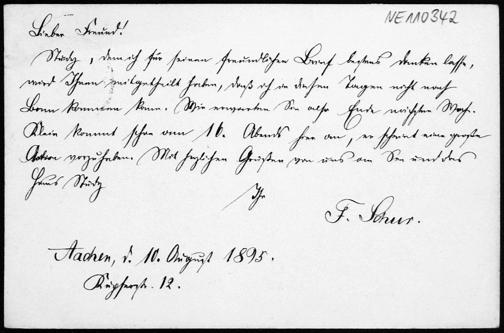 NE110342
Lieber Freund!
Study, dem ich für seinen freundlichen Brief bestens danken lasse,
wird Ihnen mitgetheilt haben, daß ich in diesen Tagen nicht nach
Bonn kommen kann. Wir erwarten Sie also Ende nächster Woche.
Klein kommt schon am 16. Abends hier an, er scheint eine große
Aktion vorzuhaben. Mit herzlichen Grüßen von uns an Sie und das
Haus Study
Ihr
F. Schur.
Aachen, d. 10. August 1895.
Kupferstr. 12.